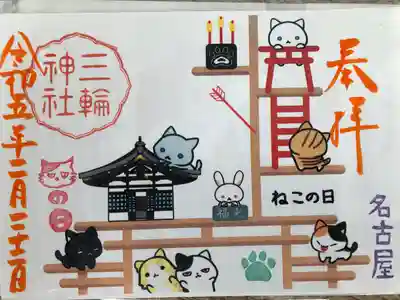 奉拝
名古屋
ねこの日
三輪
神社
の日
令和五年二月二十二日